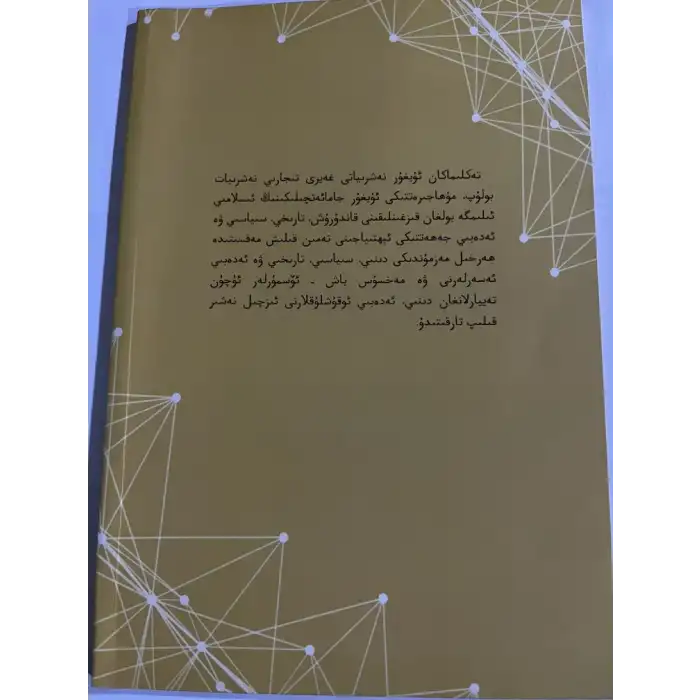 تەكلىماكان ئۇيغۇر نەشرىياتى غەيرى تىجارىي نەشرىيات
بولۇپ، مۇھاجىرەتتىكى ئۇيغۇر جامائەتچىلىكىنىڭ ئىسلامىي
ئىلىمگە بولغان قىزغىنلىقىنى قاندۇرۇش، تارىخىي، سىياسىي ۋە
ئەدەبىي جەھەتتىكى ئېھتىياجىنى تەمىن قىلىش مەقسىتىدە
ھەرخىل مەزمۇندىكى دىنىي، سىياسىي، تارىخىي ۋە ئەدەبىي
ئەسەرلەرنى ۋە مەخسۇس ياش - ئۆسمۈرلەر ئۈچۈن
تەييارلانغان دىنىي، ئەدەبىي ئوقۇشلۇقلارنى ئىزچىل نەشىر
قىلىپ تارقىتىدۇ.